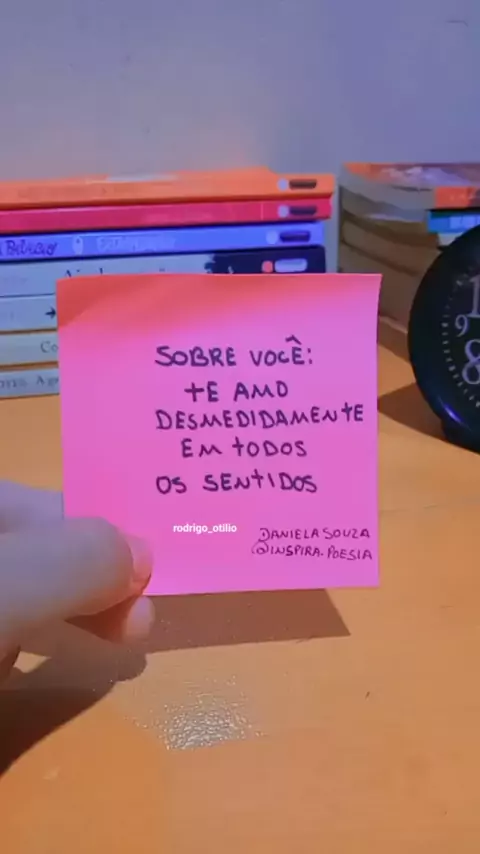 SOBRE VOCÊ:
TE AMO
DESMEDIDAMENTE
EM TODOS
OS SENTIDOS
rodrigo_otilio
DANIELA SOUZA
@INSPIRA.POESIA